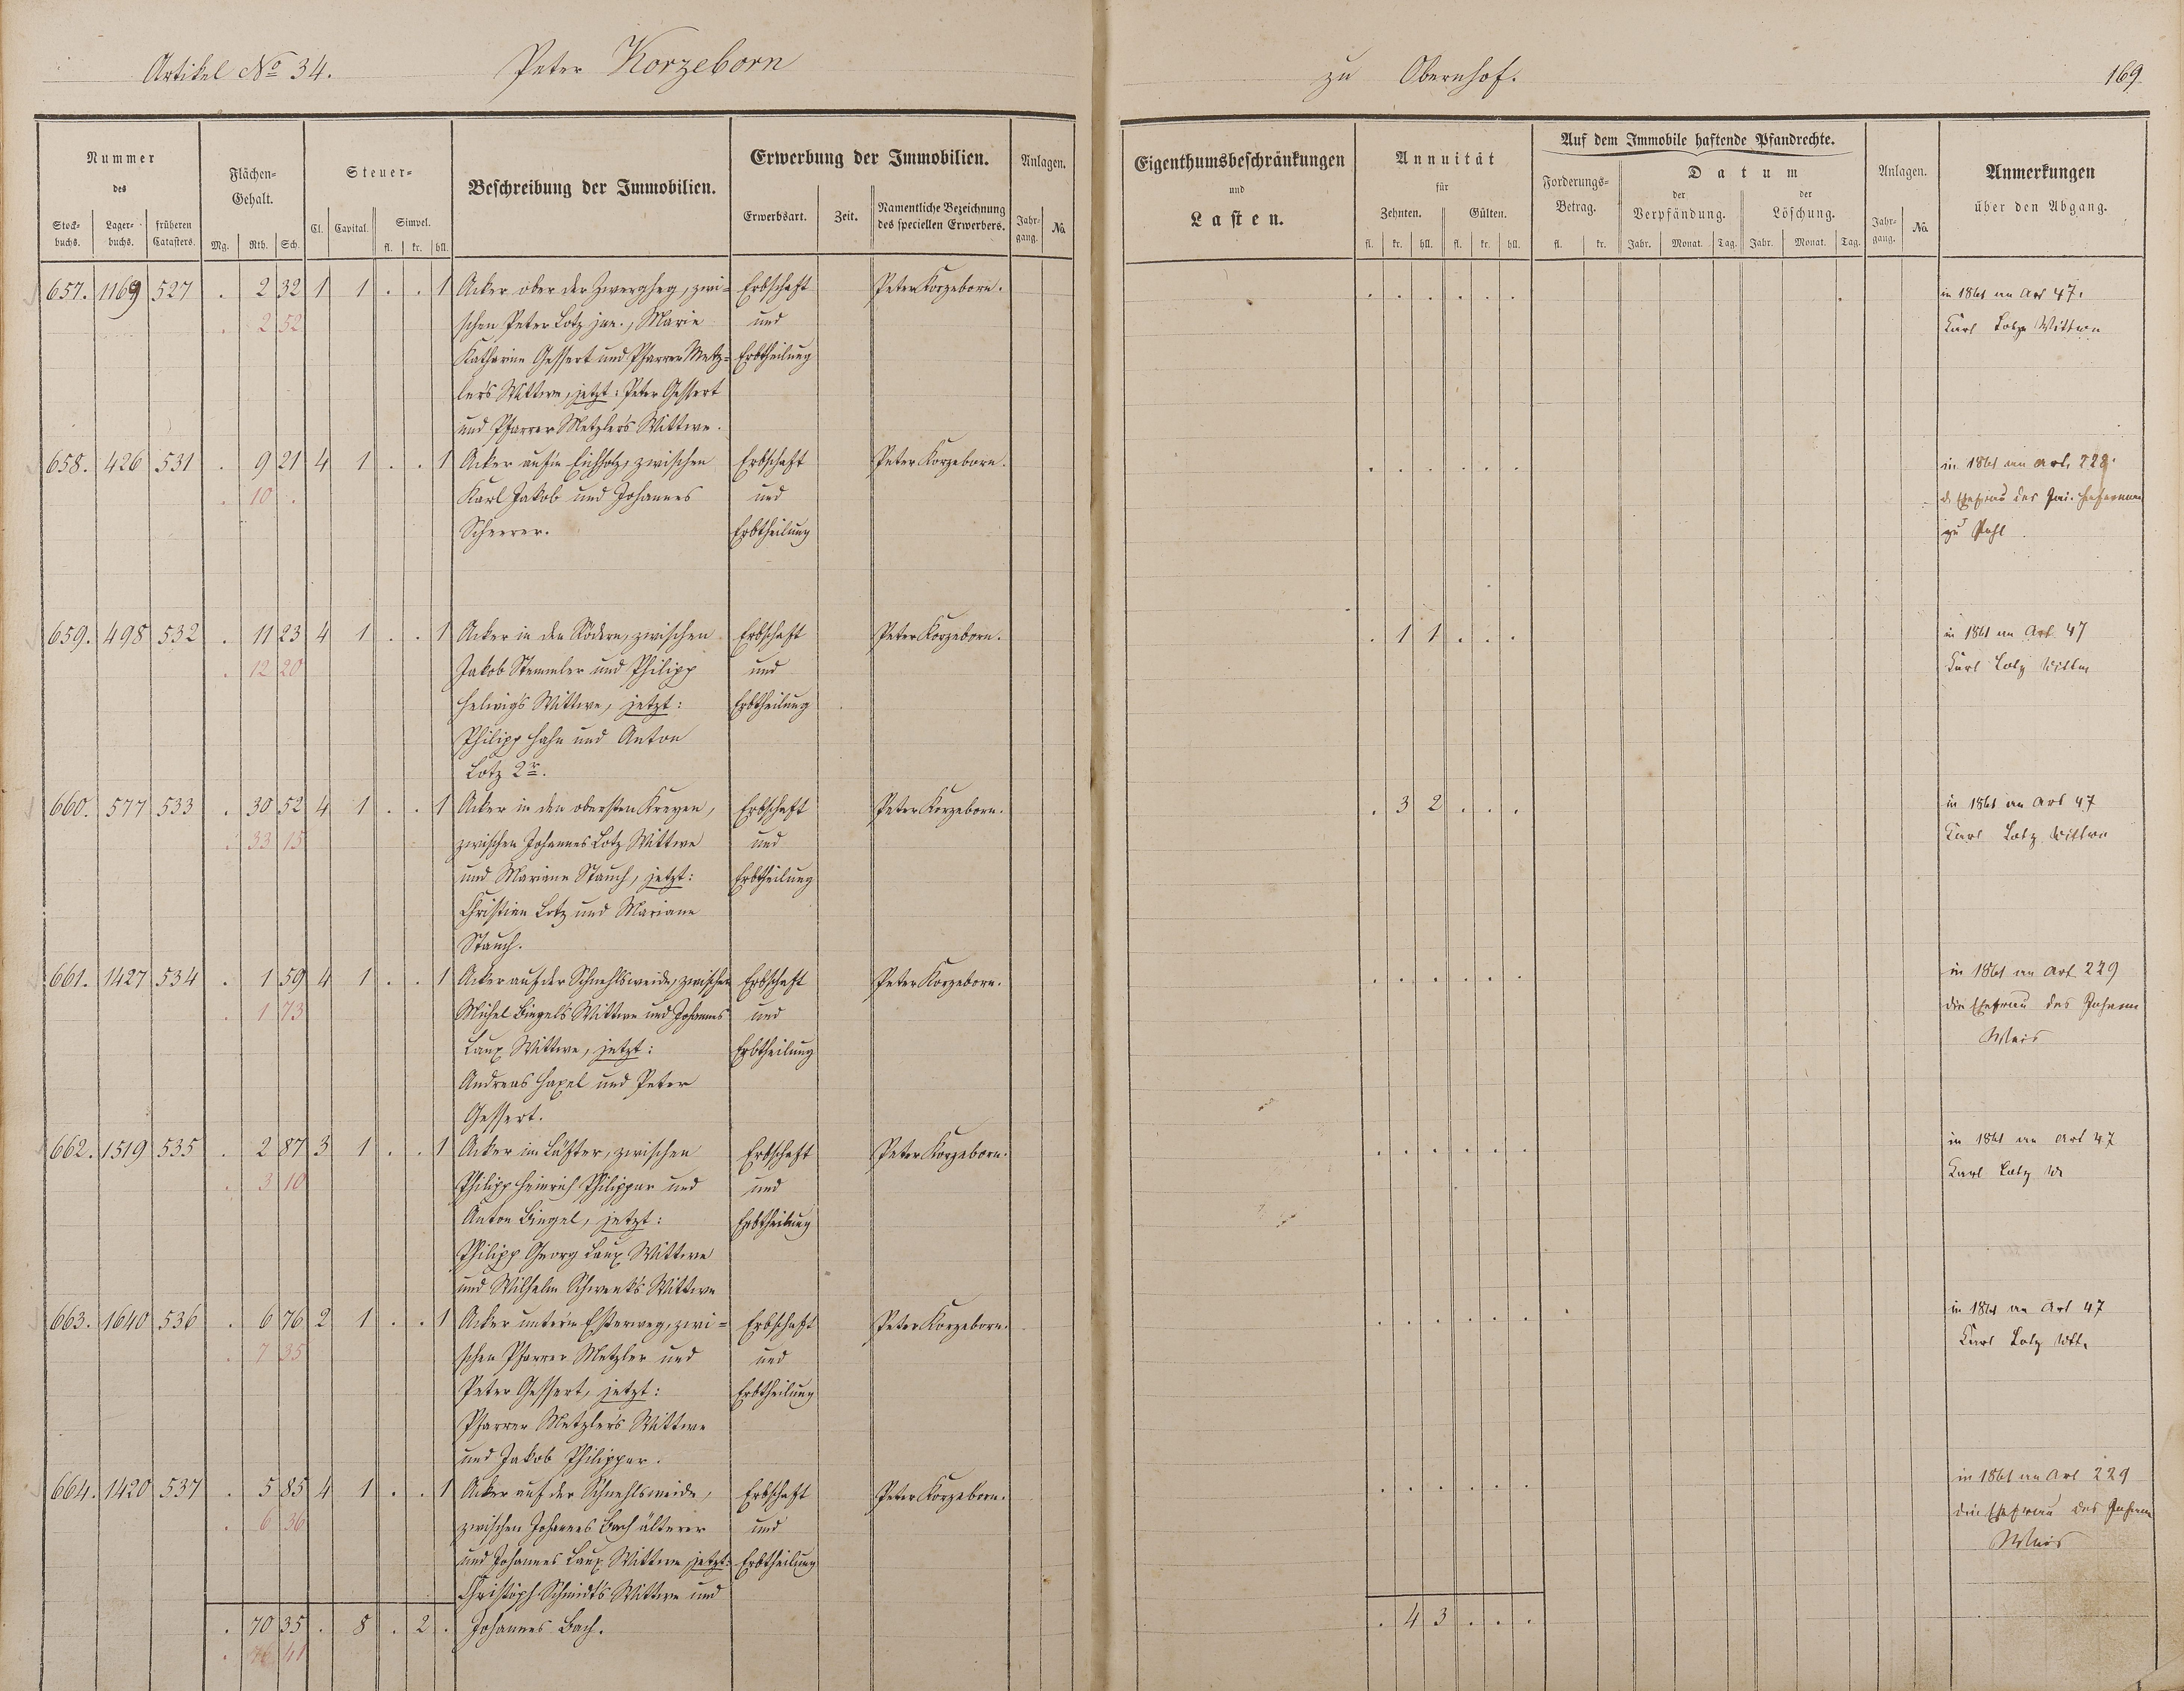 Artikel No 34. Peter Korzeborn zu Obernhof. 169
Nummer des
Stockbuchs. Lagerbuchs. früheren Catasters.
Flächen-Gehalt.
Mg. Rth. Sch.
Steuer-
Cl. Capital. Simpel. fl. kr. hll.
Beschreibung der Immobilien.
Erwerbung der Immobilien.
Erwerbsart. Zeit. Namentliche Bezeichnung des speciellen Erwerbers.
Anlagen. Jahrgang. No.
Eigenthumsbeschränkungen und Lasten.
Annuität für
Zehnten. Gülten.
fl. kr. hll. fl. kr. hll.
Auf dem Immobile haftende Pfandrechte.
Forderungs-Betrag. fl. kr.
Datum
der Verpfändung. der Löschung.
Jahr. Monat. Tag. Jahr. Monat. Tag.
Anlagen. Jahrgang. No.
Anmerkungen über den Abgang.
657. 1169 527 . 2 32 1 1 . . 1 Acker ober der Zwergheg, zwi= Erbschaft Peter Korzeborn. . . . . . . in 1861 an Art 47.
. 2 52 schen Peter Lotz jun., Marie und Karl Lotz Wittwe
Katharine Gessert und Pfarrer Metz= Erbtheilung
lers Wittwe, jetzt: Peter Gessert
und Pfarrer Metzlers Wittwe.
658. 426 531 . 9 21 4 1 . . 1 Acker aufm Eichholz, zwischen Erbschaft Peter Korzeborn. . . . . . . in 1861 an Art. 228.
. 10 . Karl Jakob und Johannes und d. Ehefrau des
Scheerer. Erbtheilung zu Pohl
659. 498 532 . 11 23 4 1 . . 1 Acker in den Rödern, zwischen Erbschaft Peter Korzeborn. . 1 1 . . . in 1861 an Art 47
. 12 20 Jakob Stemmler und Philipp und Karl Lotz Wittw
Helwigs Wittwe, jetzt: Erbtheilung
Philipp Hahn und Anton
Lotz 2r.
660. 577 533 . 30 52 4 1 . . 1 Acker in den obersten Kreyen, Erbschaft Peter Korzeborn. . 3 2 . . . in 1861 an Art 47
. 33 15 zwischen Johannes Lotz Wittwe und Karl Lotz Wittwe
und Mariane Stauch, jetzt: Erbtheilung
Christian Lotz und Mariane
Stauch.
661. 1427 534 . 1 59 4 1 . . 1 Acker auf der Schnehlsweide, zwischen Erbschaft Peter Korzeborn. . . . . . . in 1861 an Art 229
. 1 73 Michel Bingels Wittwe und Johannes und die Ehefrau des Johann
Laux Wittwe, jetzt: Erbtheilung Weis
Andreas Hagel und Peter
Gessert.
662. 1519 535 . 2 87 3 1 . . 1 Acker im Läster, zwischen Erbschaft Peter Korzeborn. . . . . . . in 1861 an Art 47
. 3 10 Philipp Heinrich Philippar und und Karl Lotz W
Anton Bingel, jetzt: Erbtheilung
Philipp Georg Laux Wittwe
und Wilhelm Schwenk's Wittwe
663. 1640 536 . 6 76 2 1 . . 1 Acker unterm Esterweg, zwi= Erbschaft Peter Korzeborn. . . . . . . in 1861 an Art 47
. 7 35 schen Pfarrer Metzler und und Karl Lotz Wtt.
Peter Gessert, jetzt: Erbtheilung
Pfarrer Metzlers Wittwe
und Jakob Philippar.
664. 1420 537 . 5 85 4 1 . . 1 Acker auf der Schnehlsweide, Erbschaft Peter Korzeborn. . . . . . . in 1861 an Art 229
. 6 36 zwischen Johannes Bach älterer und die Ehefrau des Johann
und Johannes Laux Wittwe, jetzt: Erbtheilung Weis
Christoph Schmidt's Wittwe und
. 70 35 . 8 . 2 . Johannes Bach. . 4 3 . . .
. 76 41